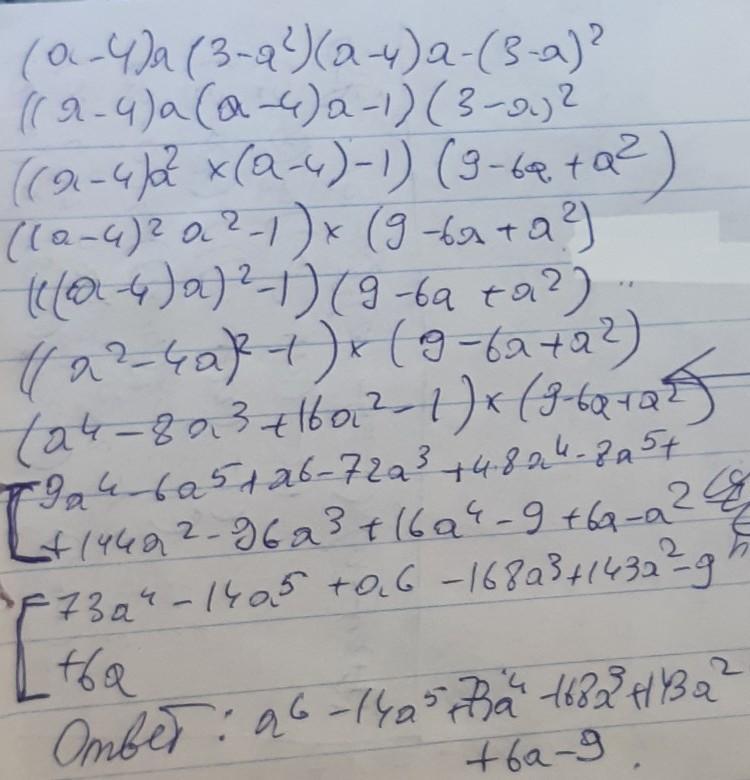 (a-4)a(3-a²)(a-4)a-(3-a)²
((a-4)a(a-4)a-1)(3-a)²
((a-4)a²×(a-4)-1)(9-6a+a²)
((a-4)²a²-1)×(9-6a+a²)
(((a-4)a)²-1)(9-6a+a²)
((a²-4a)²-1)×(9-6a+a²)
(a⁴-8a³+16a²-1)×(9-6a+a²)
[9a⁴-6a⁵+a6-72a³+48a⁴-8a⁵+
+144a²-96a³+16a⁴-9+6a-a²
[73a⁴-14a⁵+a6-168a³+143a²-9
+6a
Ответ: a⁶-14a⁵+73a⁴-168a³+143a²
+6a-9.